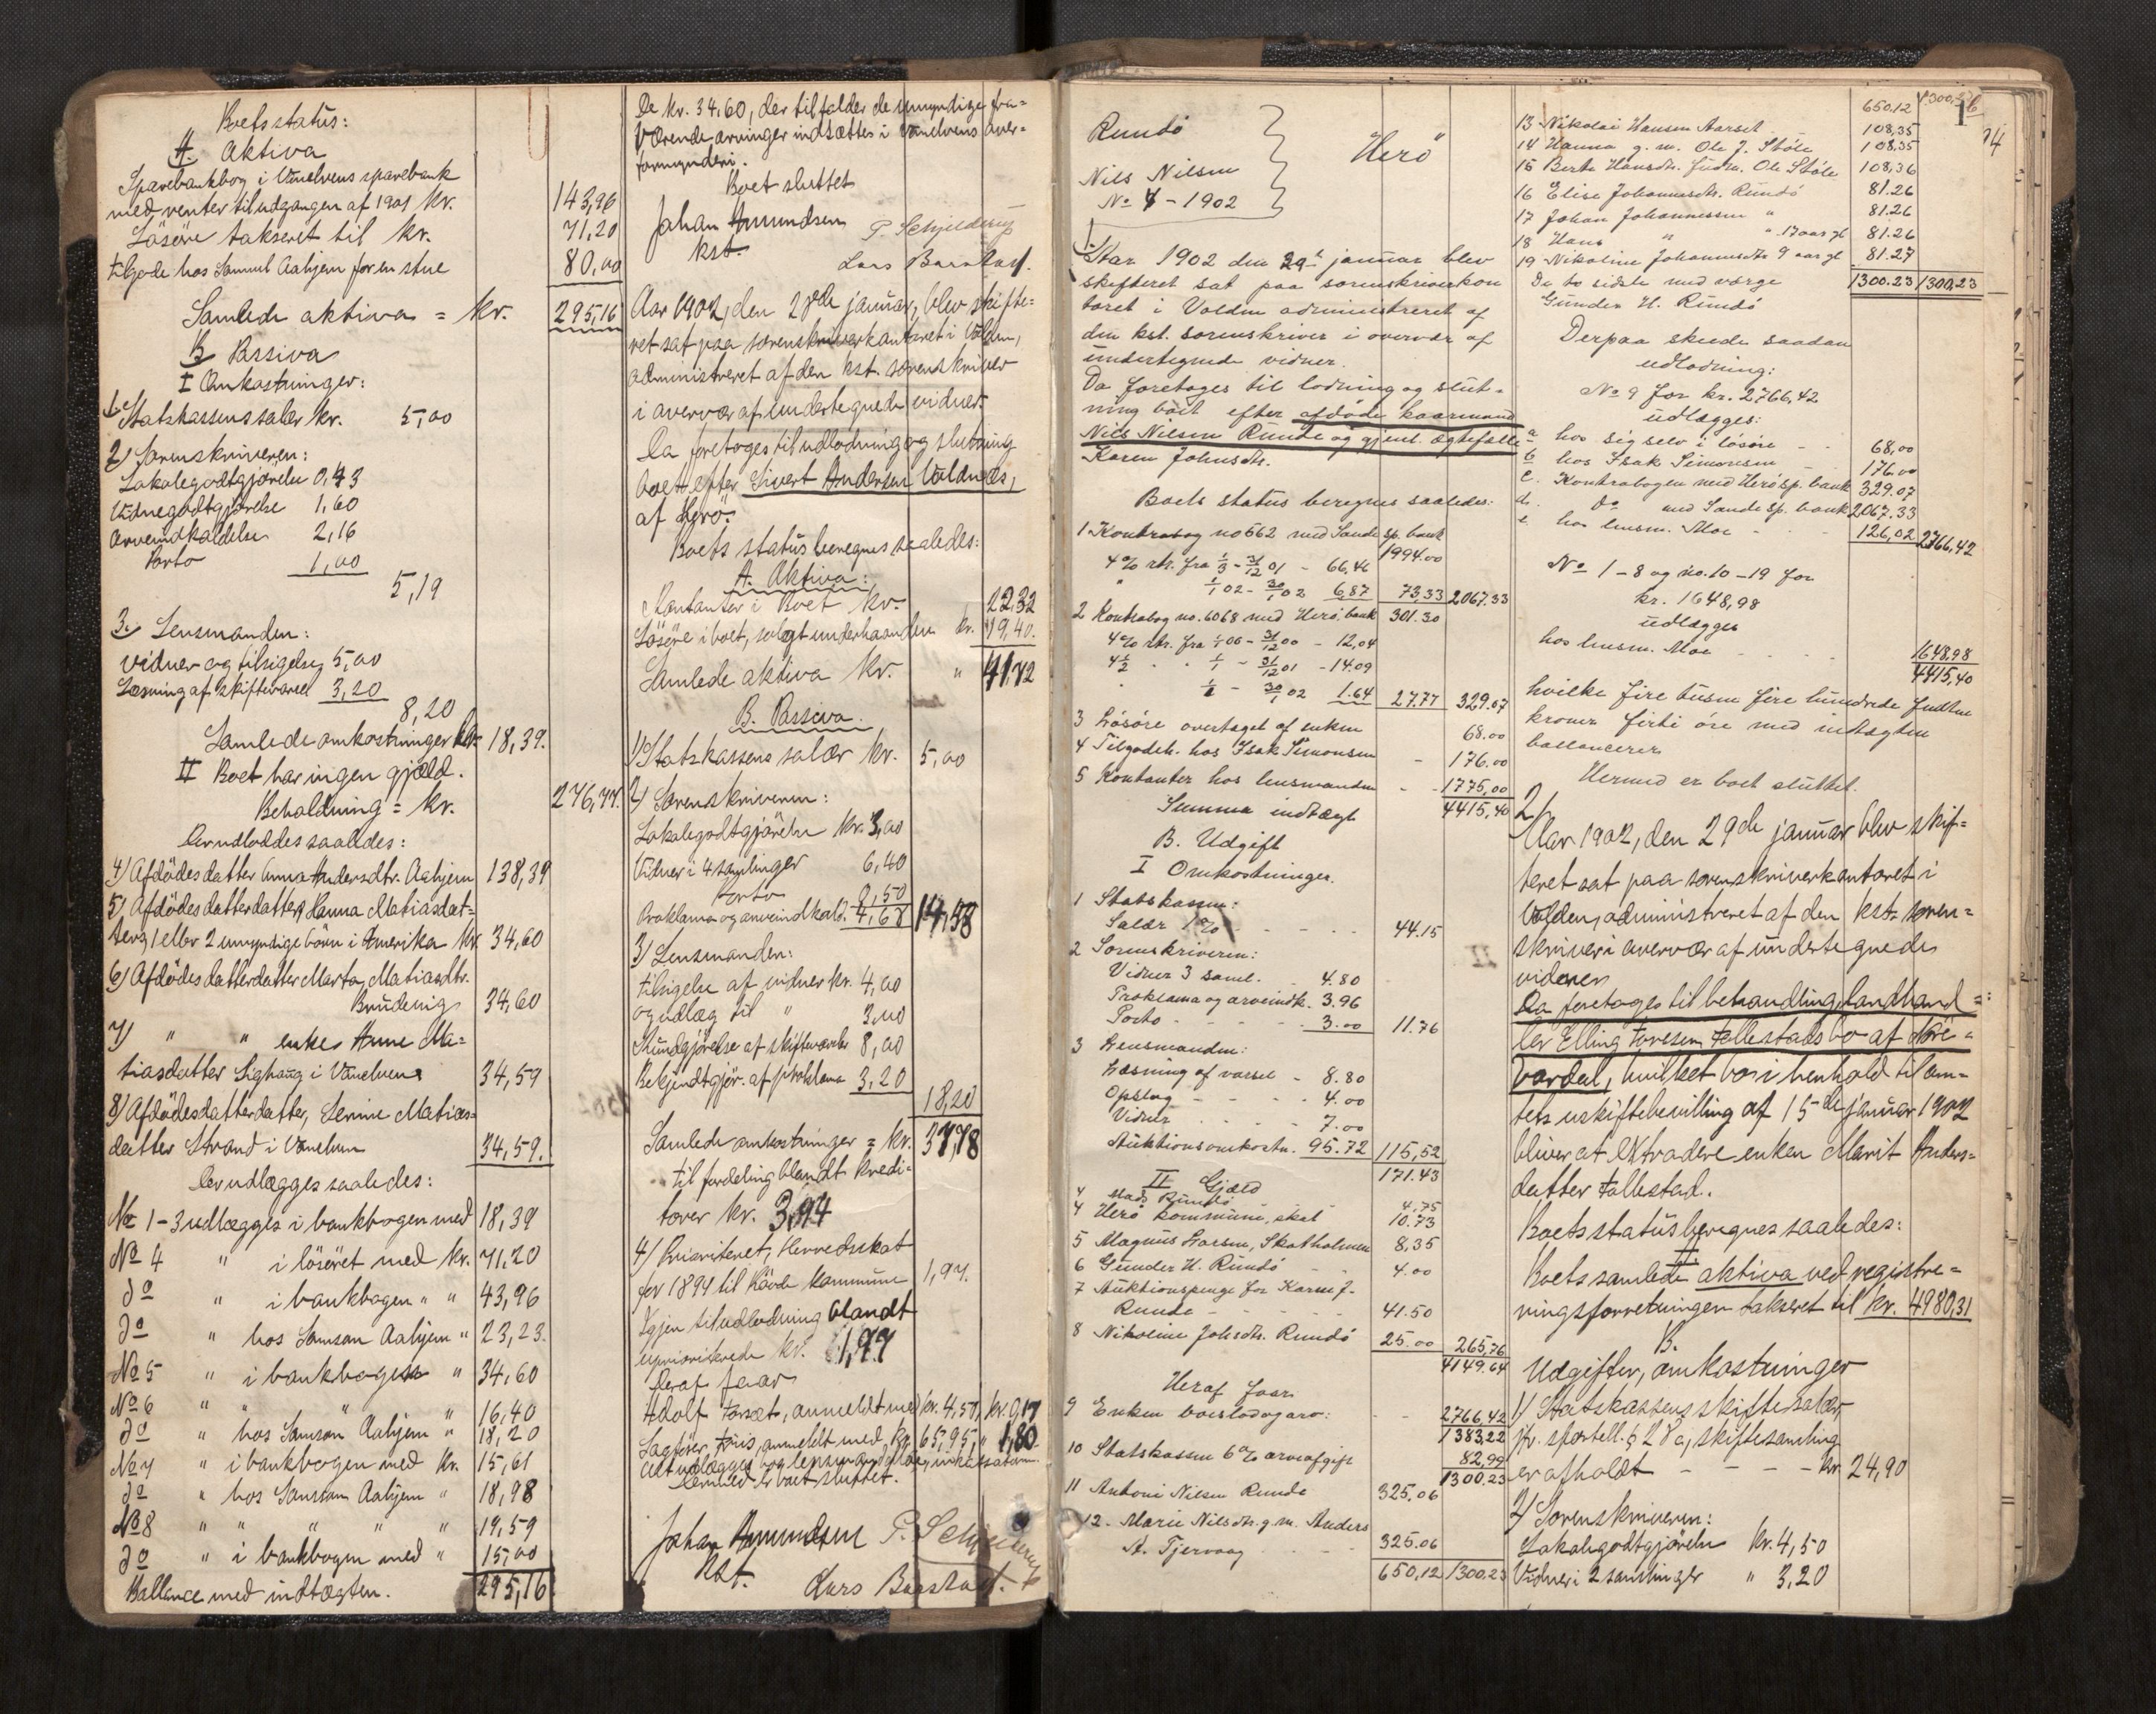 Boets status:
A. Aktiva
Sparebankbog i Vanelvens sparebank
med renter til udgangen af 1901 kr. 143,96
Løsøre takseret til kr. 71,20
tilgode hos Samuel Aahjem for en stue 80,00
Samlede aktiva = kr. 295,16
B Passiva
I Omkostninger:
1. Statskassens salær kr. 5,00
2) Sorenskriveren:
Lokalegodtgjørelse 0,43
Vidnegodtgjørelse 1,60
Arveindkaldelse 2,16
Porto 1,00
5,19
3. Lensmanden:
Vidner og tilsigelse 5,00
Læsning af skiftevarsel 3,20
8,20
Samlede omkostninger kr. 18,39.
II Boet har ingen gjæld.
Beholdning = kr. 276,77.
der udloddes saaledes:
4) Afdødes datter Anna Andersdtr. Aahjem 138,39
5) Afdødes datterdatter Hanna Matiasdat=
ters 1 eller 2 umyndige børn i Amerika kr. 34,60
6) Afdødes datterdatter Marta Matiasdtr.
Brudevig 34,60
7) " " enke Anne Ma=
tiasdatter Sighaug i Vanelven 34,59
8) Afdødes datterdatter, Serine Matias=
datter Strand i Vanelven 34,59.
der udlægges saaledes:
No 1-3 udlægges i bankbogen med 18,39
No 4 " i løsøret med kr. 71,20
do " i bankbogen " " 43,96
do " hos Samson Aahjem " 23,23.
No 5 " i bankbogen " 34,60
No 6 " " " " 16,40
do " hos Samson Aahjem " 18,20
No 7 " i bankbogen med kr. 15,61
do " hos Samson Aahjem " 18,98
No 8 " " " " " 19,59
do " i bankbogen med " 15,00
Ballance med indtægten. 295,16
De kr. 34,60, der tilfalder de umyndige fra=
værende arvinger indsættes i Vanelvens over=
formynderi.
Boet sluttet
Johan Amundsen P. Schjelderup
kst. Lars Barstad.
Aar 1902, den 28de januar, blev skifte=
ret sat paa sorenskriverkontoret i Volden,
administreret af den kst. sorenskriver
i overvær af undertegnede vidner.
Da foretoges til udlodning og slutning
boet efter Sivert Andersen Voldnes,
af Herø.
Boets status beregnes saaledes:
A. Aktiva:
Kontanter i Boet kr. 22,32
Løsøre i boet, solgt underhaanden kr. 19,40.
Samlede aktiva kr. " 41,72
B. Passiva.
1) Statskassens salær kr. 5,00
2) Sorenskriveren:
Lokalegodtgjørelse kr. 3,00
Vidner i 4 samlinger 6,40
Porto 0,50
Proklama og arveindkald. 4,68 14,58
3) Lensmanden:
tilsigelse af vidner kr. 4,00
og udlæg til " 3,00
Kundgjørelse af skiftevarsler 8,00
Bekjendtgjør. af proklama 3,20
18,20
Samlede omkostninger = kr. 37,78
til fordeling blandt kredi=
torer kr. 3,94
4) Prioriteret, Herredsskat
for 1899 til Røvde kommune 1,97.
Igjen til udlodning blandt
uprioriterede kr. 1,97
deraf faar
Adolf Aarsæt, anmeldt med kr. 4,57, kr. 0,17
Sagfører Friis, anmeldt med kr. 65,95, " 1,80
Hermed er boet sluttet.
Johan Amundsen P. Schjelderup
kst. Lars Barstad.
Rundø
Herø
Nils Nilsen
No 4 - 1902
1.
Aar 1902 den 29de januar blev
skifteret sat paa sorenskriverkon
toret i Volden administreret af
den kst. sorenskriver i overvær af
undertegnede vidner.
Da foretoges til lodning og slut-
ning boet efter afdøde kaarmand
Nils Nilsen Runde og gjenl. ægtefælle
Karen Johnsdtr.
Boets status beregnes saaledes:
1 Kontrabog no 562 med Sande sp. bank 1994.00
4% rtr. fra 1/3 - 31/12 01 - 66.46
" 1/1 02 - 30/1 02 6.87 73,33 2067.33
2 Kontrabog no. 6068 med Herø, bank 301.30
4% rtr. fra 1/1 00 - 31/12 00 - 12,04
4 1/2 " " 1/1 - 31/12 01 - 14.09
" 1/1 - 30/1 02 1.64 27.77 329.07
3 Løsøre overtaget af enken 68.00
4 Tilgodeh. hos Isak Simonsen - 176.00
5 Kontanter hos lensmanden - - 1775,00
Summa indtægt 4415,40
B. Udgift
I Omkostninger.
1 Statskassen:
Salær 1% - - - - 44.15
2 Sorenskriveren:
Vidner 3 saml. - 4.80
Proklama og arveindk. 3.96
Porto - - - - 3.00 11.76
3 Lensmanden:
Læsning af varsel - 8.80
Opslag - - - 4.00
Vidner - - - 7.00
Auktionsomkostn. 95.72 115,52
171.43
II Gjæld
4 Mads Rundø 4,75
4 Herø kommune, skat 10.73
5 Magnus Larsen, Skotholmen 8,35
6 Gunder H. Rundø - - 4.00
7 Auktionspenge for Karen J.
Runde - - - - 41.50
8 Nikoline Johsdtr. Rundø 25.00 265,76
4149.64
Heraf faar
9 Enken boeslod og arv: - - 2766,42
1383,22
10 Statskassen 6% arveafgift 82,99
1300.23
11 Antoni Nilsen Runde 325.06
12. Marie Nilsdtr. g. m. Anders
A. Tjervaag - - - 325.06
650,12 1300.23
14
650.12 1300,23
13 Nikolai Hansen Aarset 108,35
14 Hanna g. m. Ole J. Støle 108,35
15 Berte Hansdtr. Gudm. Ole Støle 108,36
16 Elise Johannesdtr. Rundø 81.26
17 Johan Johannessen " 81.26
18 Hans " " 17 aar gl 81.26
19 Nikoline Johannesdtr 9 aar gl 81.27
De to sidste med værge 1300.23 1300,23
Gunder H. Rundø
Derpaa skede saadan
udlodning:
No 9 for kr. 2766,42
udlægges:
a hos sig selv i løsøre - - 68,00
b hos Isak Simonsen - 176.00
c. Kontrabogen med Herø sp. bank 329.07
d. do med Sande sp. bank 2067.33
e. hos lensm. Moe - - - 126,02 2766,42
No 1-8 og no. 10-19 for
kr. 1648,98
udlægges
hos lensm. Moe - - - - 1648,98
4415,40
hvilke fire tusen fire hundrede femten
kroner firti øre med indtægten
ballancerer
Hermed er boet sluttet.
2/
Aar 1902, den 29de januar blev skif=
teret sat paa sorenskriverkontoret i
Volden, administreret af den kst. soren=
skriver i overvær af undertegnede
vidner.
Da foretoges til behandling landhand=
ler Elling Knutsen Follestads bo af Øre=
vardal, hvilket bo i henhold til am-
tets uskiftebevilling af 15de januar 1902
bliver at extradere enken Marit Anders=
datter Follestad.
Boets status beregnes saaledes:
Boets samlede aktiva ved registre=
ringsforretningen takseret til kr. 4980,31
B.
Udgifter, omkostninger
1) Statskassens skiftesalær,
jfr. sportell. § 28 a, skiftesamling
er afholdt - - - - kr. 24,90
2) Sorenskriveren:
Lokalegodtgjørelse kr. 4,50
Vidner i 2 samlinger " 3,20